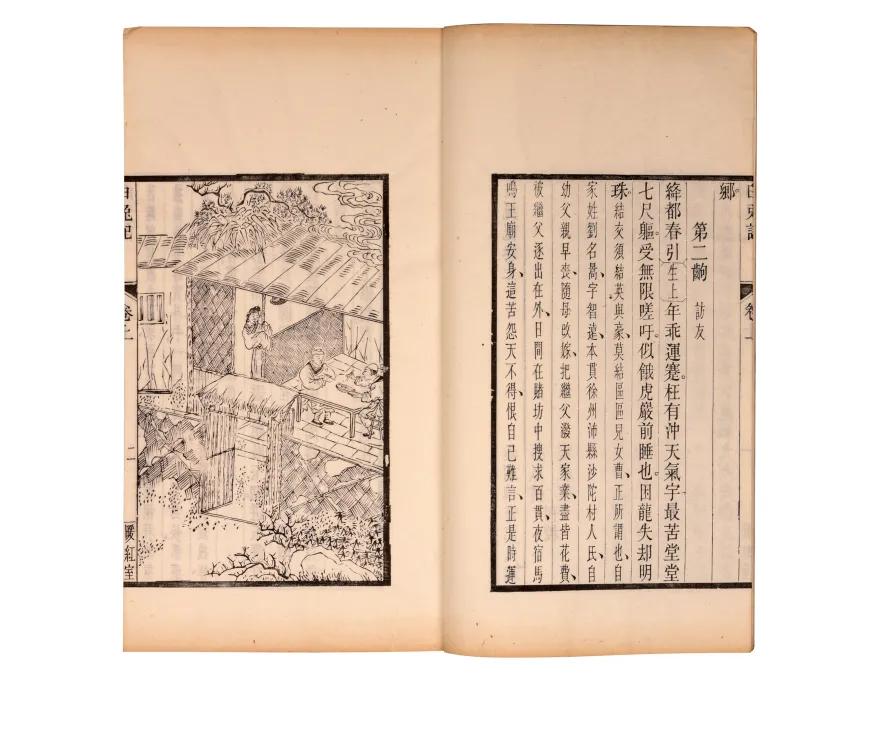 鄉。
第二齣 訪友
絳都春引 生上 年乖運蹇。枉有沖天氣宇最苦堂堂
七尺軀受無限嗟吁。似餓虎巖前睡也。困龍失却明
珠。結交須結英與豪、莫結區區兒女曹、正所謂也、自
家姓劉名暠、字智遠、本貫徐州沛縣沙陀村人氏、自
幼父親早喪、隨母改嫁、把繼父潑天家業、盡皆花費、
被繼父逐出在外、日間在賭坊中搜求百貫、夜宿馬
鳴王廟安身、這苦怨天不得、恨自己難言、正是時運
白兔記 卷上 二 暖紅室